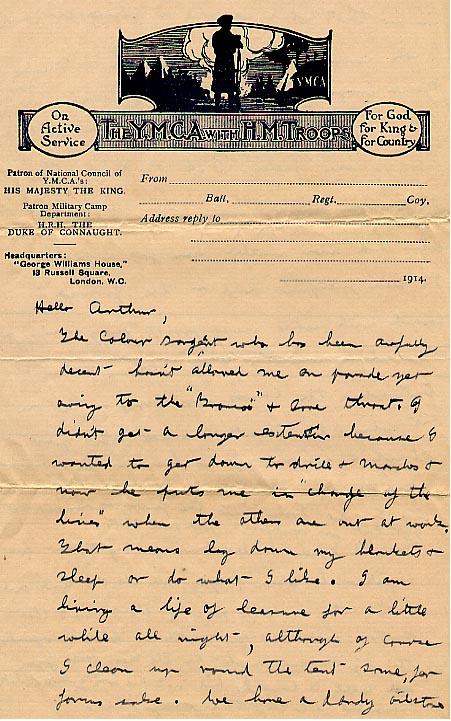 YMCA
On
Active
Service
THE Y.M.C.A. WITH H.M. TROOPS
For God
for King &
for Country
Patron of National Council of
Y.M.C.A.'s:
HIS MAJESTY THE KING.
Patron Military Camp
Department:
H.R.H. THE
DUKE OF CONNAUGHT.
Headquarters:
"George Williams House,"
13 Russell Square,
London, W.C.
From
Batt. Regt. Coy.
Address reply to
1914.
Hello Arthur,
The Colour sargent who has been awfully
decent hasn't allowed me on parade yet
owing to the " " & sore throat. I
didn't get a longer extention because I
wanted to get down to drills & marches &
now he puts me in "charge of the
lines" when the others are out at work.
That means lay down my blankets &
sleep or do what I like. I am
living a life of leasure for a little
while all right, although of course
I clean up round the tent some, for
forms sake. We have a handy oilstove